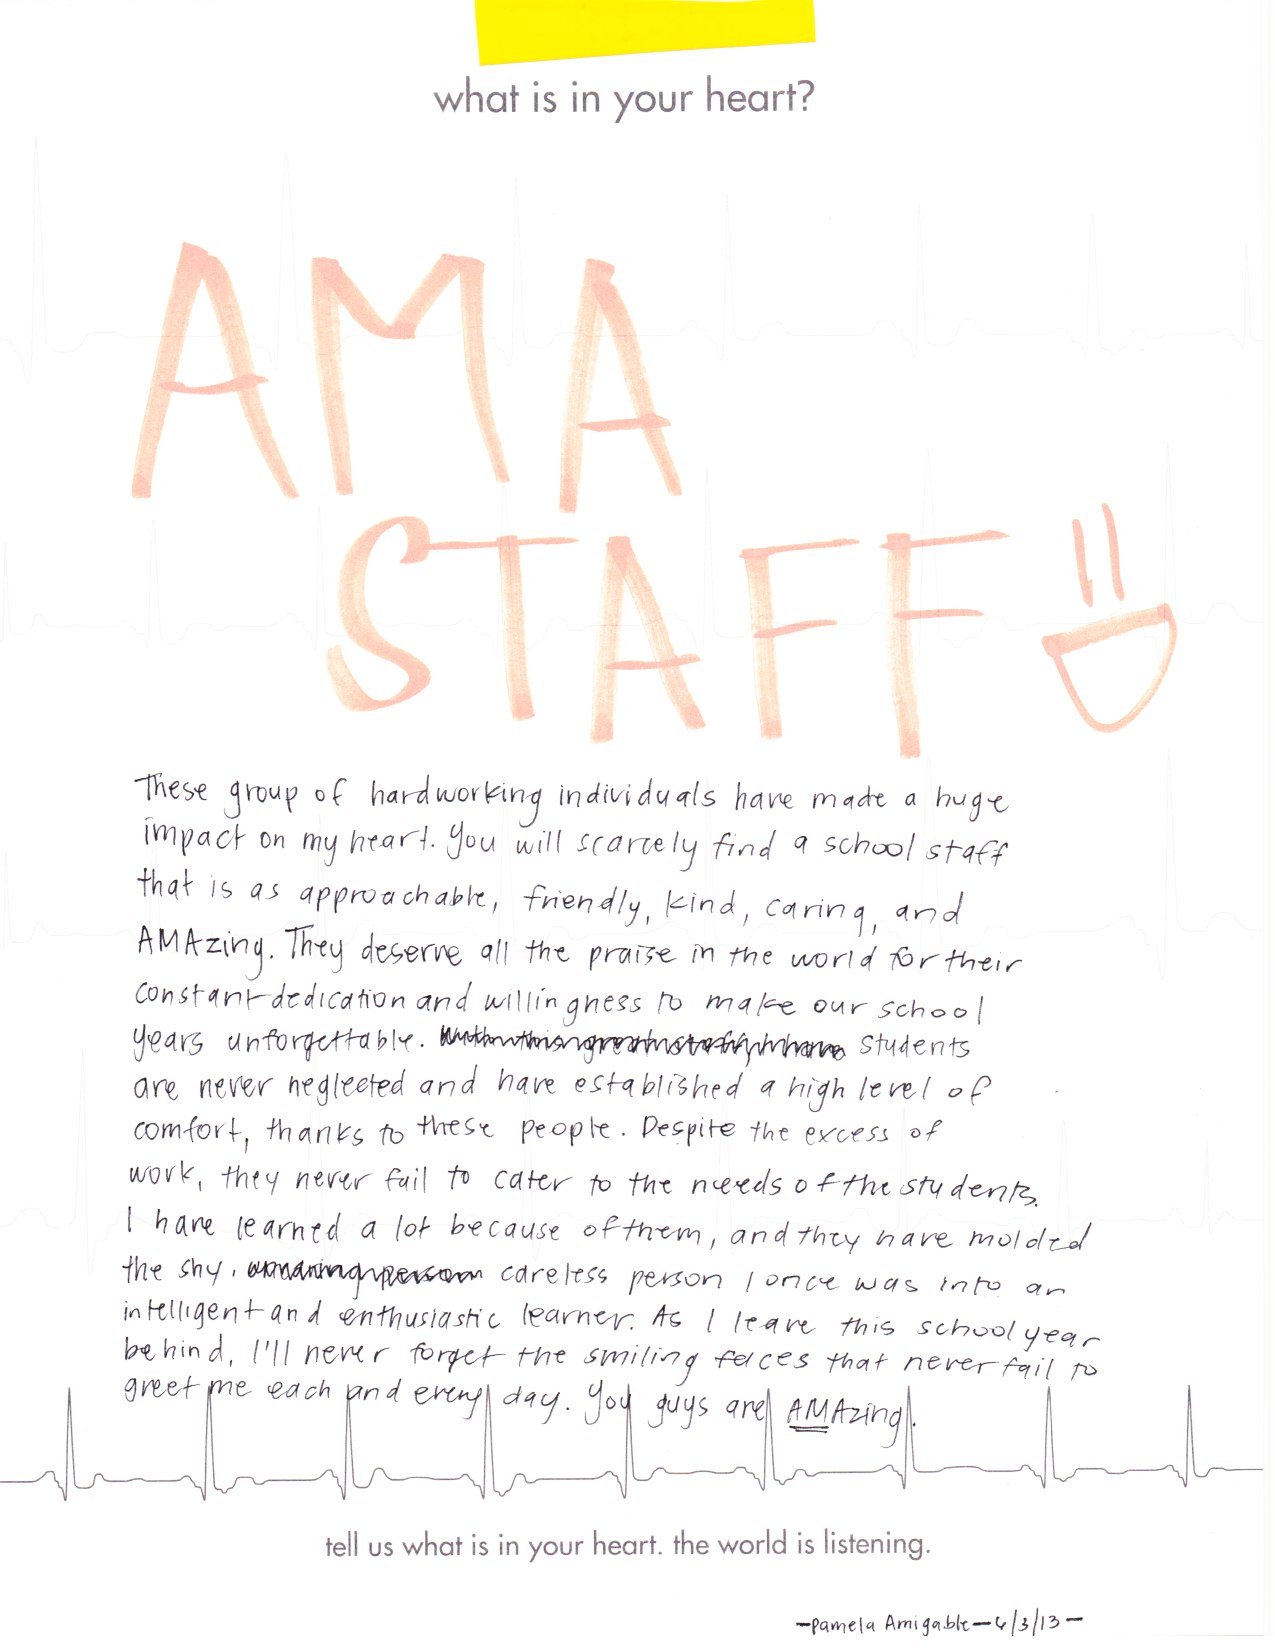 what is in your heart?
AMA
STAFF
These group of hardworking individuals have made a huge
impact on my heart. You will scarcely find a school staff
that is as approachable, friendly, kind, caring, and
AMAzing. They deserve all the praise in the world for their
constant dedication and willingness to make our school
years unforgettable. Students
are never neglected and have established a high level of
comfort, thanks to these people. Despite the excess of
work, they never fail to cater to the needs of the students.
I have learned a lot because of them, and they have molded
the shy, careless person I once was into an
intelligent and enthusiastic learner. As I leave this school year
behind, I'll never forget the smiling faces that never fail to
greet me each and every day. You guys are AMAzing.
tell us what is in your heart. the world is listening.
-Pamela Amigable-6/3/13-